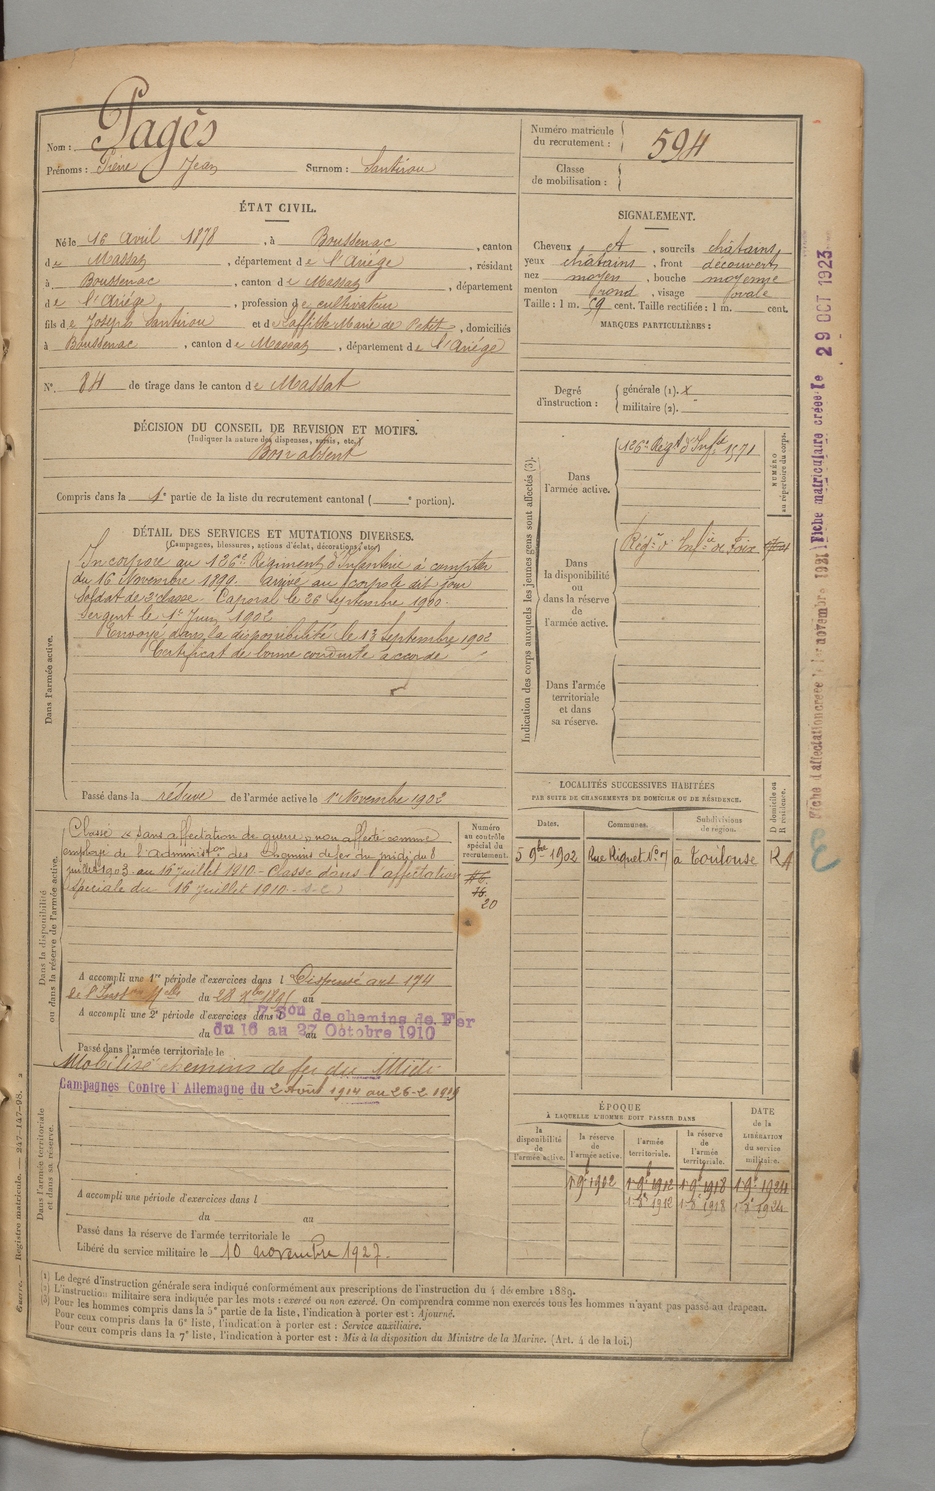 Nom : Pagès
Prénoms : Pierre Jean Surnom : Santirou
ÉTAT CIVIL.
Né le 16 Avril 1878, à Boussenac, canton
de Massat, département de l'Ariège, résidant
à Boussenac, canton de Massat, département
de l'Ariège, profession de cultivateur
fils de Joseph Santirou et de Laffitte Marie de Petit, domiciliés
à Boussenac, canton de Massat, département de l'Ariège
N°. 84 de tirage dans le canton de Massat
DÉCISION DU CONSEIL DE REVISION ET MOTIFS.
(Indiquer la nature des dispenses, sursis, etc.)
Bon absent
Compris dans la 1e partie de la liste du recrutement cantonal ( e portion).
DÉTAIL DES SERVICES ET MUTATIONS DIVERSES.
(Campagnes, blessures, actions d'éclat, décorations, etc.)
Dans l'armée active.
Incorporé au 126e Régiment d'Infanterie à compter
du 16 Novembre 1899. Arrivé au corps le dit jour
Soldat de 2e classe. Caporal le 26 Septembre 1900.
Sergent le 1er Juin 1902
Envoyé dans la disponibilité le 13 Septembre 1902
Certificat de bonne conduite accordé
Passé dans la réserve de l'armée active le 1er Novembre 1902
Dans la disponibilité
ou dans la réserve de l'armée active.
Classé "sans affectation de guerre" non affecté comme
employé de l'administon des Chemins de fer du midi du 8
juillet 1903 au 16 juillet 1910 - Classé dans l'affectation
spéciale du 16 juillet 1910 - S.C.)
Numéro
au contrôle
spécial du
recrutement.
20
A accompli une 1re période d'exercices dans l Dispensé art 174
de l'Inston Melle du 28 Xbre 1895 au
A accompli une 2e période d'exercices dans son de chemins de Fer
du 16 au 27 Octobre 1910
Passé dans l'armée territoriale le
Mobilisé chemins de fer du Midi
Campagnes Contre l'Allemagne du 2 Août 1914 au 26-2 1919
Dans l'armée territoriale
et dans sa réserve.
A accompli une période d'exercices dans l
du au
Passé dans la réserve de l'armée territoriale le
Libéré du service militaire le 10 novembre 1927.
Guerre. — Registre matricule. — 247-147-98.
Numéro matricule
du recrutement : 594
Classe
de mobilisation :
SIGNALEMENT.
Cheveux et, sourcils châtains,
yeux châtains, front découvert,
nez moyen, bouche moyenne
menton rond, visage ovale
Taille : 1 m. 59 cent. Taille rectifiée : 1 m. cent.
MARQUES PARTICULIÈRES :
Degré
d'instruction :
générale (1). x
militaire (2).
Indication des corps auxquels les jeunes gens sont affectés (3).
Dans
l'armée active.
126e Régt d'Infie 1571
NUMÉRO
au répertoire du corps.
Dans
la disponibilité
ou
dans la réserve
de
l'armée active.
Régt d'Infie de Foix
Dans l'armée
territoriale
et dans
sa réserve.
LOCALITÉS SUCCESSIVES HABITÉES
PAR SUITE DE CHANGEMENTS DE DOMICILE OU DE RÉSIDENCE.
Dates. Communes. Subdivisions de région. D domicile ou R résidence.
5 9bre 1902 Rue Riquet No 7 à Toulouse
ÉPOQUE
À LAQUELLE L'HOMME DOIT PASSER DANS
la disponibilité de l'armée active.
la réserve de l'armée active.
l'armée territoriale.
la réserve de l'armée territoriale.
DATE
de la
LIBÉRATION
du service
militaire.
1 9e 1902 1 9e 1912 1 9e 1918 1 9e 1924
1 8e 1912 1 8e 1918 1 8e 1924
(1) Le degré d'instruction générale sera indiqué conformément aux prescriptions de l'instruction du 4 décembre 1889.
(2) L'instruction militaire sera indiquée par les mots : exercé ou non exercé. On comprendra comme non exercés tous les hommes n'ayant pas passé au drapeau.
(3) Pour les hommes compris dans la 5e partie de la liste, l'indication à porter est : Ajourné.
Pour ceux compris dans la 6e liste, l'indication à porter est : Service auxiliaire.
Pour ceux compris dans la 7e liste, l'indication à porter est : Mis à la disposition du Ministre de la Marine. (Art. 4 de la loi.)
Fiche d'affectation créée le 1er novembre 1921 Fiche matriculaire créée le 29 OCT 1923